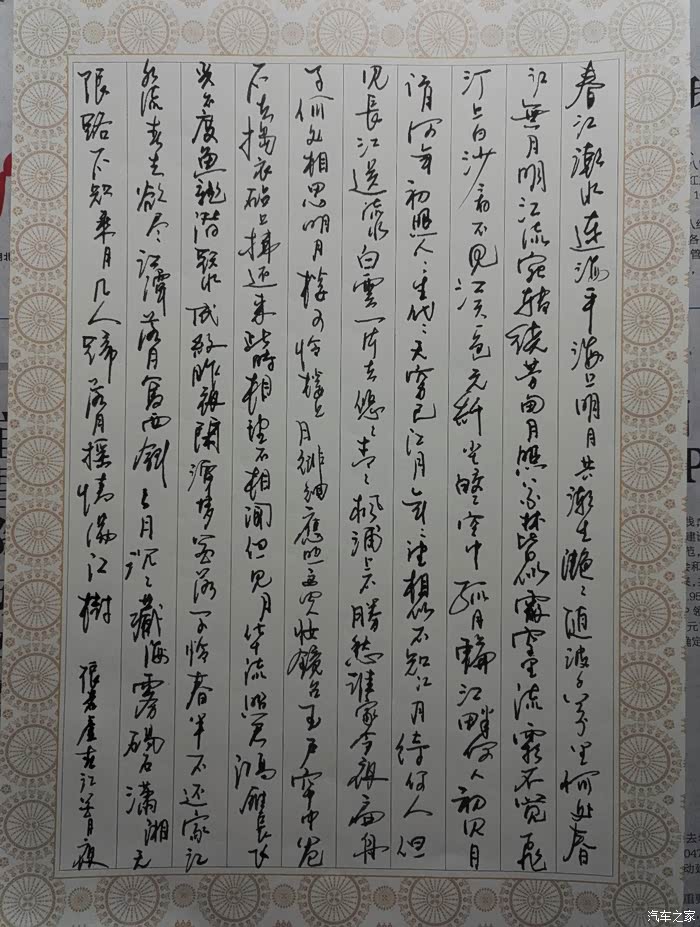 春江潮水连海平海上明月共潮生滟〻随波千万里何处春
江無月明江流宛转绕芳甸月照花林皆似霰空里流霜不觉飛
汀上白沙看不见江天一色无纤尘皎〻空中孤月輪江畔何人初见月
江月何年初照人人生代〻无穷已江月年〻望相似不知江月待何人但
见長江送流水白雲一片去悠〻青〻枫浦上不勝愁誰家今夜扁舟
子何处相思明月楼可怜楼上月徘徊應照离人妝鏡台玉户帘中卷
不去搗衣砧上拂还来此時相望不相闻但见月华流照君鴻雁長飞
光不度鱼龍潜躍水成紋昨夜闲潭梦落花可怜春半不还家江
水流春去欲尽江潭落月复西斜斜月沉〻藏海雾碣石潇湘无
限路不知乘月几人歸落月摇情满江樹 張若虚春江花月夜
汽车之家